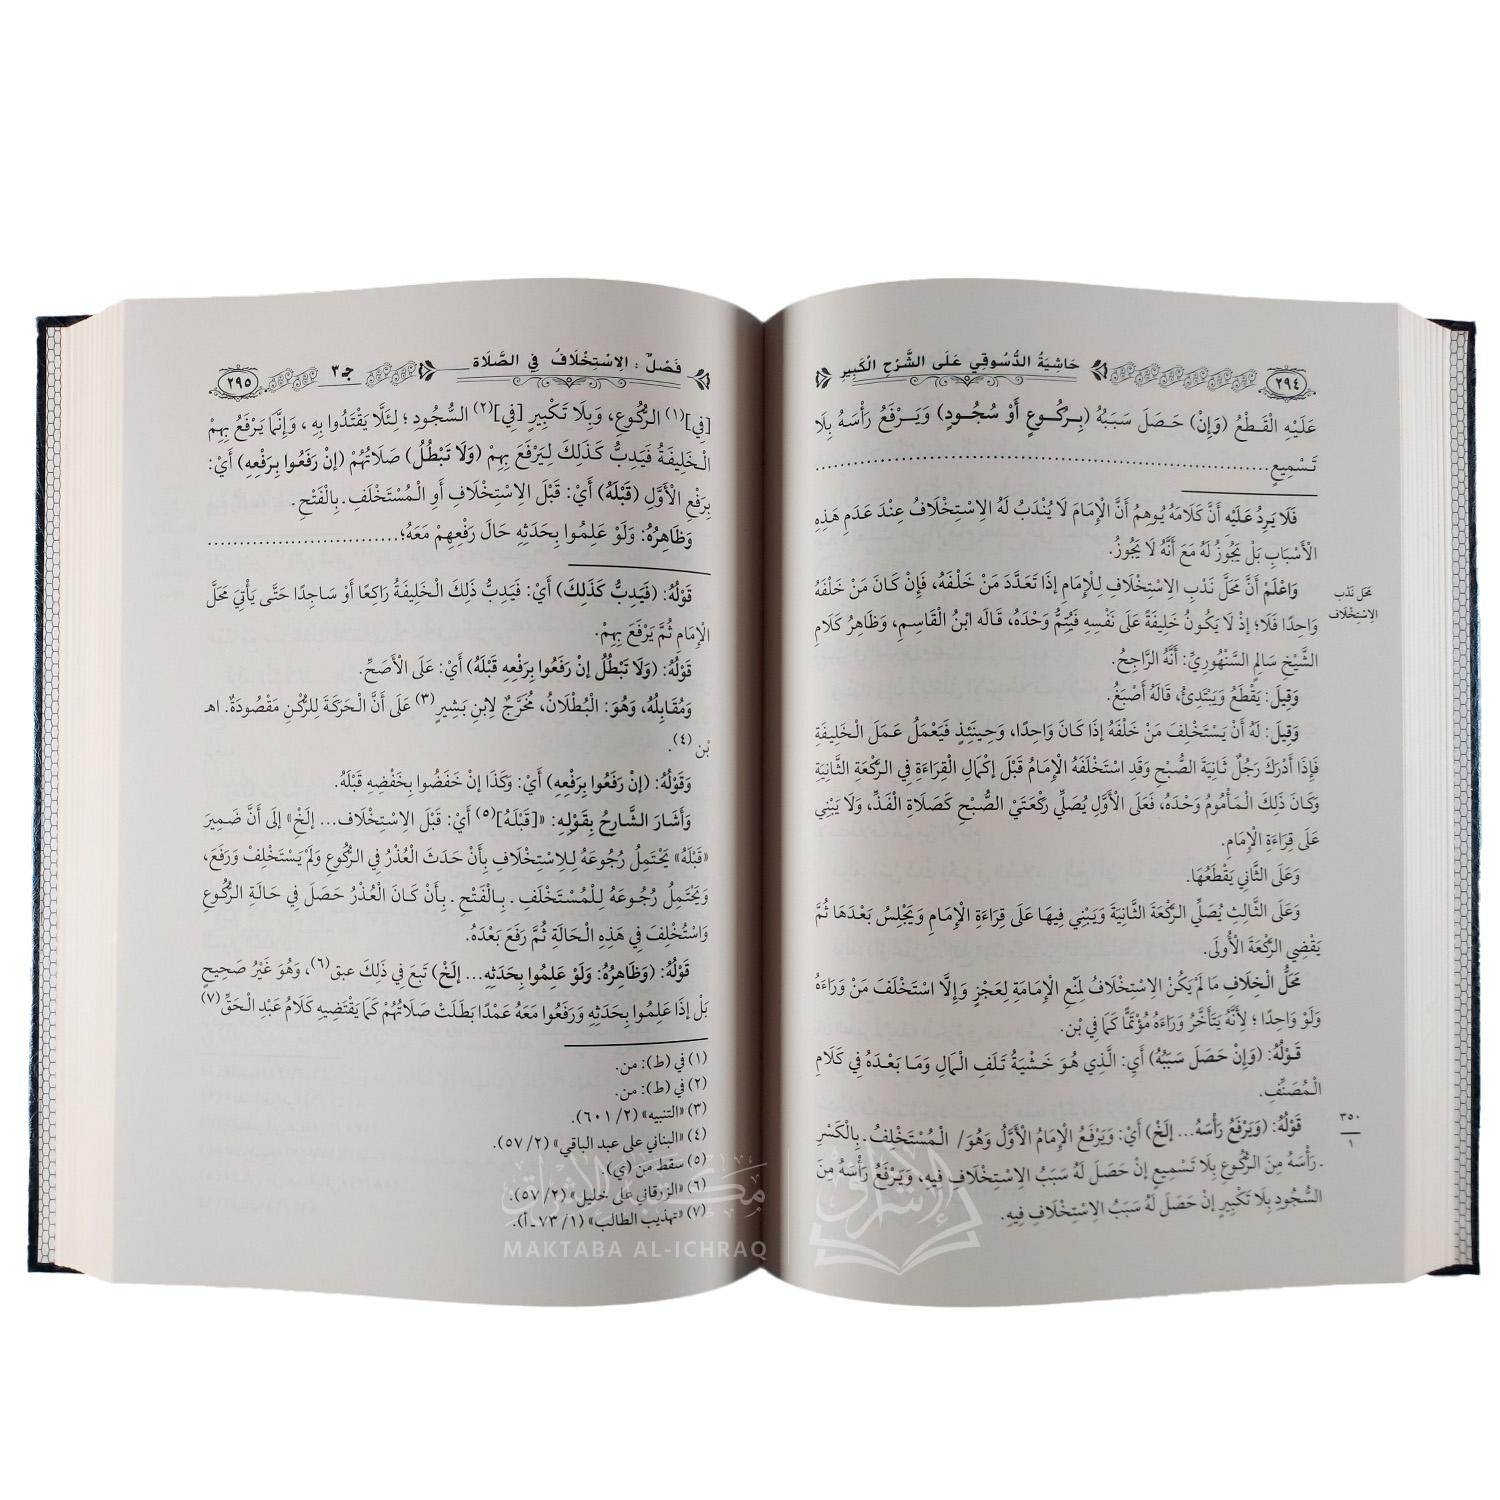 حَاشِيَةُ الدُّسُوقِي عَلَى الشَّرْحِ الْكَبِيرِ
٢٩٤
عَلَيْهِ الْقَطْعُ (وَإِنْ) حَصَلَ سَبَبُهُ (بِرُكُوعٍ أَوْ سُجُودٍ) وَيَرْفَعُ رَأْسَهُ بِلَا
تَسْمِيعٍ................................................................
فَلَا يَرِدُ عَلَيْهِ أَنَّ كَلَامَهُ يُوهِمُ أَنَّ الْإِمَامَ لَا يُنْدَبُ لَهُ الِاسْتِخْلَافُ عِنْدَ عَدَمِ هَذِهِ
الْأَسْبَابِ بَلْ يَجُوزُ لَهُ مَعَ أَنَّهُ لَا يَجُوزُ.
وَاعْلَمْ أَنَّ مَحَلَّ نَدْبِ الِاسْتِخْلَافِ لِلْإِمَامِ إِذَا تَعَدَّدَ مَنْ خَلْفَهُ، فَإِنْ كَانَ مَنْ خَلْفَهُ
مَحَل نَدْب
الِاسْتِخْلَاف
وَاحِدًا فَلَا؛ إِذْ لَا يَكُونُ خَلِيفَةً عَلَى نَفْسِهِ فَيُتِمُّ وَحْدَهُ، قَالَه ابْنُ الْقَاسِمِ، وَظَاهِرُ كَلَامِ
الشَّيْخِ سَالِمٍ السَّنْهُورِيِّ: أَنَّهُ الرَّاجِحُ.
وَقِيلَ: يَقْطَعُ وَيَبْتَدِئُ، قَالَهُ أَصْبَغُ.
وَقِيلَ: لَهُ أَنْ يَسْتَخْلِفَ مَنْ خَلْفَهُ إِذَا كَانَ وَاحِدًا، وَحِينَئِذٍ فَيَعْمَلُ عَمَلَ الْخَلِيفَةِ
فَإِذَا أَدْرَكَ رَجُلٌ ثَانِيَةَ الصُّبْحِ وَقَدِ اسْتَخْلَفَهُ الْإِمَامُ قَبْلَ إِكْمَالِ الْقِرَاءَةِ فِي الرَّكْعَةِ الثَّانِيَةِ
وَكَانَ ذَلِكَ الْمَأْمُومُ وَحْدَهُ، فَعَلَى الْأَوَّلِ يُصَلِّي رَكْعَتَيْ الصُّبْحِ كَصَلَاةِ الْفَذِّ، وَلَا يَبْنِي
عَلَى قِرَاءَةِ الْإِمَامِ.
وَعَلَى الثَّانِي يَقْطَعُهَا.
وَعَلَى الثَّالِثِ يُصَلِّي الرَّكْعَةَ الثَّانِيَةَ وَيَبْنِي فِيهَا عَلَى قِرَاءَةِ الْإِمَامِ وَيَجْلِسُ بَعْدَهَا ثُمَّ
يَقْضِي الرَّكْعَةَ الْأُولَى.
مَحَلُّ الْخِلَافِ مَا لَمْ يَكُنْ الِاسْتِخْلَافُ لِمَنْعِ الْإِمَامَةِ لِعَجْزٍ وَإِلَّا اسْتَخْلَفَ مَنْ وَرَاءَهُ
وَلَوْ وَاحِدًا؛ لِأَنَّهُ يَتَأَخَّرُ وَرَاءَهُ مُؤْتَمًّا كَمَا فِي بْن.
قَوْلُهُ: (وَإِنْ حَصَلَ سَبَبُهُ) أَيِ: الَّذِي هُوَ خَشْيَةُ تَلَفِ الْمَالِ وَمَا بَعْدَهُ فِي كَلَامِ
الْمُصَنِّفِ.
٣٥٠
١
قَوْلُهُ: (وَيَرْفَعُ رَأْسَهُ... إلَخْ) أَيْ: وَيَرْفَعُ الْإِمَامُ الْأَوَّلُ وَهُوَ/ الْمُسْتَخْلِفُ ـ بِالْكَسْرِ
ـ رَأْسَهُ مِنَ الرُّكُوعِ بِلَا تَسْمِيعٍ إِنْ حَصَلَ لَهُ سَبَبُ الِاسْتِخْلَافِ فِيهِ، وَيَرْفَعُ رَأْسَهُ مِنَ
السُّجُودِ بِلَا تَكْبِيرٍ إِنْ حَصَلَ لَهُ سَبَبُ الِاسْتِخْلَافِ فِيهِ.
فَصْلٌ: الِاسْتِخْلَافُ فِي الصَّلَاةِ
جـ٣
٢٩٥
[فِي](١) الرُّكُوعِ، وَبِلَا تَكْبِيرٍ [فِي](٢) السُّجُودِ؛ لِئَلَّا يَقْتَدُوا بِهِ، وَإِنَّمَا يَرْفَعُ بِهِمْ
الْخَلِيفَةُ فَيَدِبُّ كَذَلِكَ لِيَرْفَعَ بِهِمْ (وَلَا تَبْطُلُ) صَلَاتُهُمْ (إِنْ رَفَعُوا بِرَفْعِهِ) أَيْ:
بِرَفْعِ الْأَوَّلِ (قَبْلَهُ) أَيْ: قَبْلَ الِاسْتِخْلَافِ أَوِ الْمُسْتَخْلَفِ ـ بِالْفَتْحِ.
وَظَاهِرُهُ: وَلَوْ عَلِمُوا بِحَدَثِهِ حَالَ رَفْعِهِمْ مَعَهُ؛..............................
قَوْلُهُ: (فَيَدِبُّ كَذَلِكَ) أَيْ: فَيَدِبُّ ذَلِكَ الْخَلِيفَةُ رَاكِعًا أَوْ سَاجِدًا حَتَّى يَأْتِيَ مَحَلَّ
الْإِمَامِ ثُمَّ يَرْفَعَ بِهِمْ.
قَوْلُهُ: (وَلَا تَبْطُلُ إِنْ رَفَعُوا بِرَفْعِهِ قَبْلَهُ) أَيْ: عَلَى الْأَصَحِّ.
وَمُقَابِلُهُ، وَهُوَ: الْبُطْلَانُ، مُخَرَّجٌ لِابْنِ بَشِيرٍ(٣) عَلَى أَنَّ الْحَرَكَةَ لِلرُّكْنِ مَقْصُودَةٌ. اهـ
بْن (٤).
وَقَوْلُهُ: (إِنْ رَفَعُوا بِرَفْعِهِ) أَيْ: وَكَذَا إِنْ خَفَضُوا بِخَفْضِهِ قَبْلَهُ.
وَأَشَارَ الشَّارِحُ بِقَوْلِهِ: «[قَبْلَهُ](٥) أَيْ: قَبْلَ الِاسْتِخْلَافِ... إلَخْ» إِلَى أَنَّ ضَمِيرَ
«قَبْلَهُ» يَحْتَمِلُ رُجُوعَهُ لِلِاسْتِخْلَافِ بِأَنْ حَدَثَ الْعُذْرُ فِي الرُّكُوعِ وَلَمْ يَسْتَخْلِفْ وَرَفَعَ،
وَيَحْتَمِلُ رُجُوعَهُ لِلْمُسْتَخْلَفِ ـ بِالْفَتْحِ ـ بِأَنْ كَانَ الْعُذْرُ حَصَلَ فِي حَالَةِ الرُّكُوعِ
وَاسْتُخْلِفَ فِي هَذِهِ الْحَالَةِ ثُمَّ رَفَعَ بَعْدَهُ.
قَوْلُهُ: (وَظَاهِرُهُ: وَلَوْ عَلِمُوا بِحَدَثِهِ... إلَخْ) تَبِعَ فِي ذَلِكَ عبق(٦)، وَهُوَ غَيْرُ صَحِيحٍ
بَلْ إِذَا عَلِمُوا بِحَدَثِهِ وَرَفَعُوا مَعَهُ عَمْدًا بَطَلَتْ صَلَاتُهُمْ كَمَا يَقْتَضِيهِ كَلَامُ عَبْدِ الْحَقِّ(٧)
(١) في (ط): من.
(٢) في (ط): من.
(٣) «التنبيه» (٢/ ٦٠١).
(٤) «البناني على عبد الباقي» (٢/ ٥٧).
(٥) سقط من (ي).
(٦) «الزرقاني على خليل» (٢/ ٥٧).
(٧) «تهذيب الطالب» (١/ ٧٣ ـ أ).
مكتبة الإشراق
MAKTABA AL-ICHRAQ
إشراق